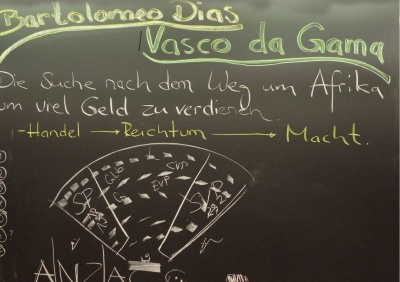 Bartolomeo Dias
Vasco da Gama
Die Suche nach dem Weg um Afrika
um viel Geld zu verdienen.
-Handel → Reichtum → Macht.
GLP
CVP
EVP
SP
SVP